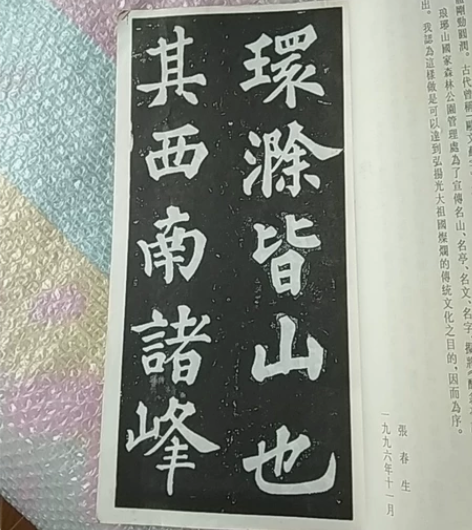 剛勁圓潤。古代曾稱
琅琊山國家森林公園管理處為了宣傳名山、名亭、名文、名字，
出。我認為這樣做是可以達到弘揚光大祖國燦爛的傳統文化之目的，因而為序。
張春生
一九九六年十一月
環滁皆山也
其西南諸峰